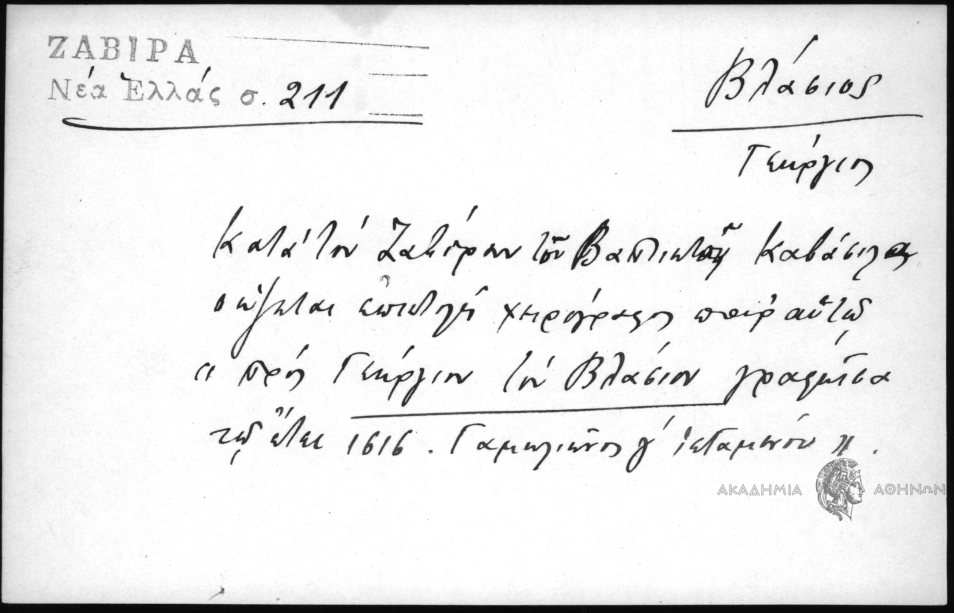 ΖΑΒΙΡΑ
Νέα Ἑλλάς σ. 211
Βλάσιος
Γεώργιος
Κατὰ τὸν Ζαβίραν τοῦ Καβάσιλα
σώζεται ἐπιστολὴ χειρόγραφος παρ' αὐτῷ
« πρὸς Γεώργιον τὸν Βλάσιον γραφεῖσα
τῷ ἔτει 1616. Γαμηλιῶνος γ' ἱσταμένου ».
ΑΚΑΔΗΜΙΑ ΑΘΗΝΩΝ